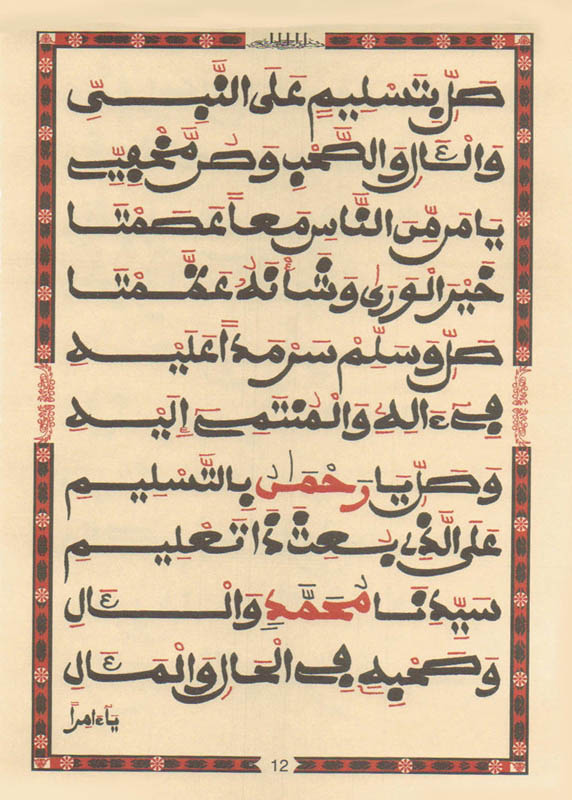 صَلِّ بِتَسْلِيمٍ عَلَى النَّبِيِّ
وَالْءَالِ وَالصَّحْبِ وَصُن مَّخْفِيِّي
يَا مَن مِّنَ النَّاسِ مَعاً عَصَمْتَا
خَيْرَ الْوَرَى وَشَأْنَهُ عَظَّمْتَا
صَلِّ وَسَلِّمْ سَرْمَداً عَلَيْهِ
فِي ءَالِهِ وَالْمُنْتَمِي إِلَيْهِ
وَصَلِّ يَا رَحْمَٰنُ بِالتَّسْلِيمِ
عَلَى الَّذِي بَعَثْتَ ذَا تَعْلِيمِ
سَيِّدِنَا مُحَمَّدٍ وَالْءَالِ
وَصَحْبِهِ فِي الْحَالِ وَالْمَءَالِ
يَا ءَامِراً
12